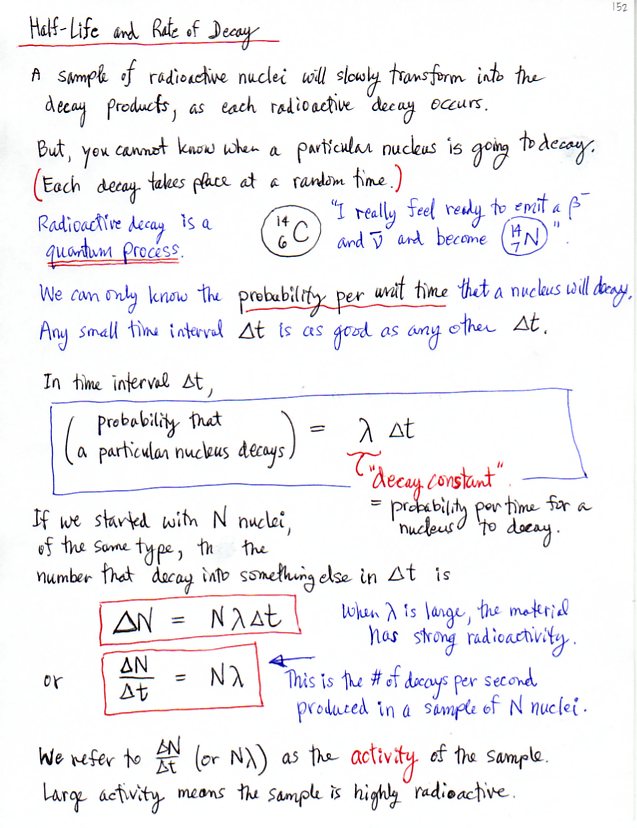 152
Half-Life and Rate of Decay
A sample of radioactive nuclei will slowly transform into the
decay products, as each radioactive decay occurs.
But, you cannot know when a particular nucleus is going to decay.
(Each decay takes place at a random time.)
Radioactive decay is a
quantum process.
14 6 C
"I really feel ready to emit a β⁻
and ν̄ and become 14 7 N".
We can only know the probability per unit time that a nucleus will decay.
Any small time interval Δt is as good as any other Δt.
In time interval Δt,
(probability that
a particular nucleus decays) = λ Δt
"decay constant"
= probability per time for a
nucleus to decay.
If we started with N nuclei,
of the same type, th the
number that decay into something else in Δt is
ΔN = NλΔt
When λ is large, the material
has strong radioactivity.
or ΔN/Δt = Nλ
This is the # of decays per second
produced in a sample of N nuclei.
We refer to ΔN/Δt (or Nλ) as the activity of the sample.
Large activity means the sample is highly radioactive.